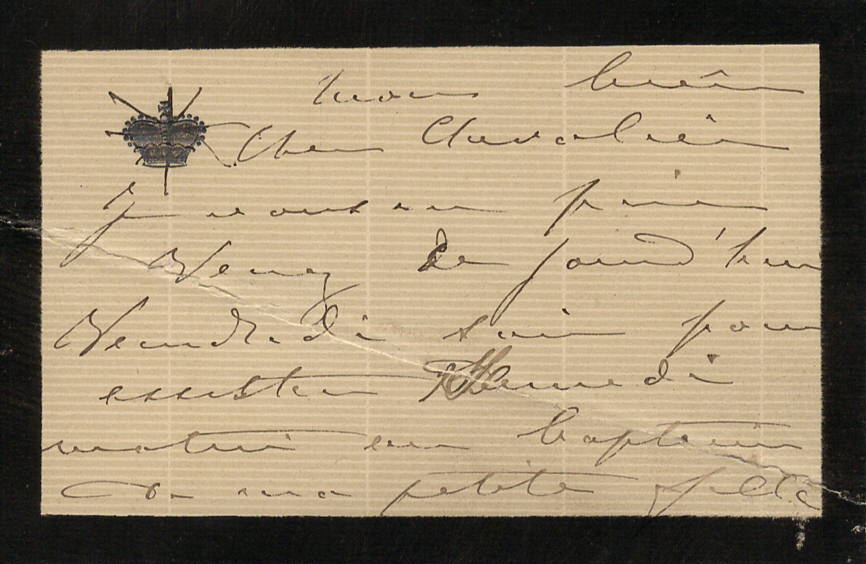 mon bien
Cher Chevalier
Je vous en prie
Venez de jourd'hui
Vendredi soir pour
assister Samedi
matin au baptême
de ma petite fille